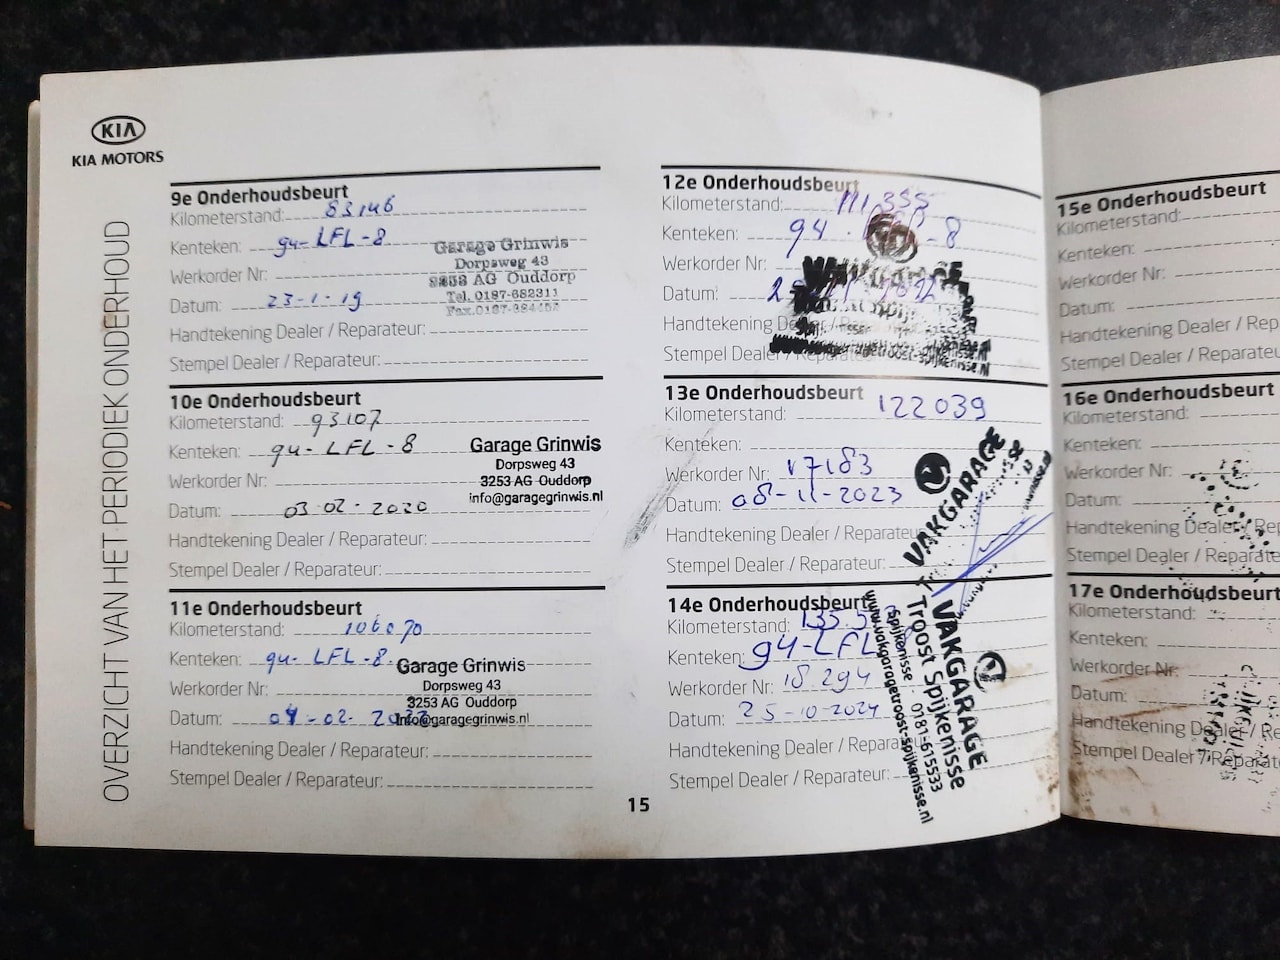 KIA
KIA MOTORS
OVERZICHT VAN HET PERIODIEK ONDERHOUD
9e Onderhoudsbeurt
Kilometerstand: 83146
Kenteken: 94-LFL-8
Werkorder Nr:
Datum: 23-1-19
Handtekening Dealer / Reparateur:
Stempel Dealer / Reparateur:
Garage Grinwis
Dorpsweg 43
3253 AG Ouddorp
Tel. 0187-682311
10e Onderhoudsbeurt
Kilometerstand: 93107
Kenteken: 94-LFL-8
Werkorder Nr:
Datum: 03-02-2020
Handtekening Dealer / Reparateur:
Stempel Dealer / Reparateur:
Garage Grinwis
Dorpsweg 43
3253 AG Ouddorp
info@garagegrinwis.nl
11e Onderhoudsbeurt
Kilometerstand: 106070
Kenteken: 94-LFL-8
Werkorder Nr:
Datum:
Handtekening Dealer / Reparateur:
Stempel Dealer / Reparateur:
Garage Grinwis
Dorpsweg 43
3253 AG Ouddorp
info@garagegrinwis.nl
12e Onderhoudsbeurt
Kilometerstand: 111355
Kenteken: 94
-8
Werkorder Nr:
Datum:
Handtekening
Stempel Dealer
13e Onderhoudsbeurt
Kilometerstand: 122039
Kenteken:
Werkorder Nr: 17183
Datum: 08-11-2023
Handtekening Dealer / Reparateur
Stempel Dealer / Reparateur:
VAKGARAGE
14e Onderhoudsbeurt
Kilometerstand: 135.5
Kenteken: 94-LFL
Werkorder Nr: 18294
Datum: 25-10-2024
Handtekening Dealer / Reparateur
Stempel Dealer / Reparateur:
VAKGARAGE
Troost Spijkenisse
Spijkenisse 0181-615533
www.vakgaragetroost-spijkenisse.nl
15
15e Onderhoudsbeurt
Kilometerstand:
Kenteken:
Werkorder Nr:
Datum:
Handtekening Dealer / Rep
Stempel Dealer / Reparate
16e Onderhoudsbeurt
Kilometerstand:
Kenteken:
Werkorder Nr:
Datum:
Handtekening Dealer / Rep
Stempel Dealer / Reparate
17e Onderhoudsbeurt
Kilometerstand:
Kenteken:
Werkorder Nr:
Datum:
Handtekening Dealer / Re
Stempel Dealer / Reparat